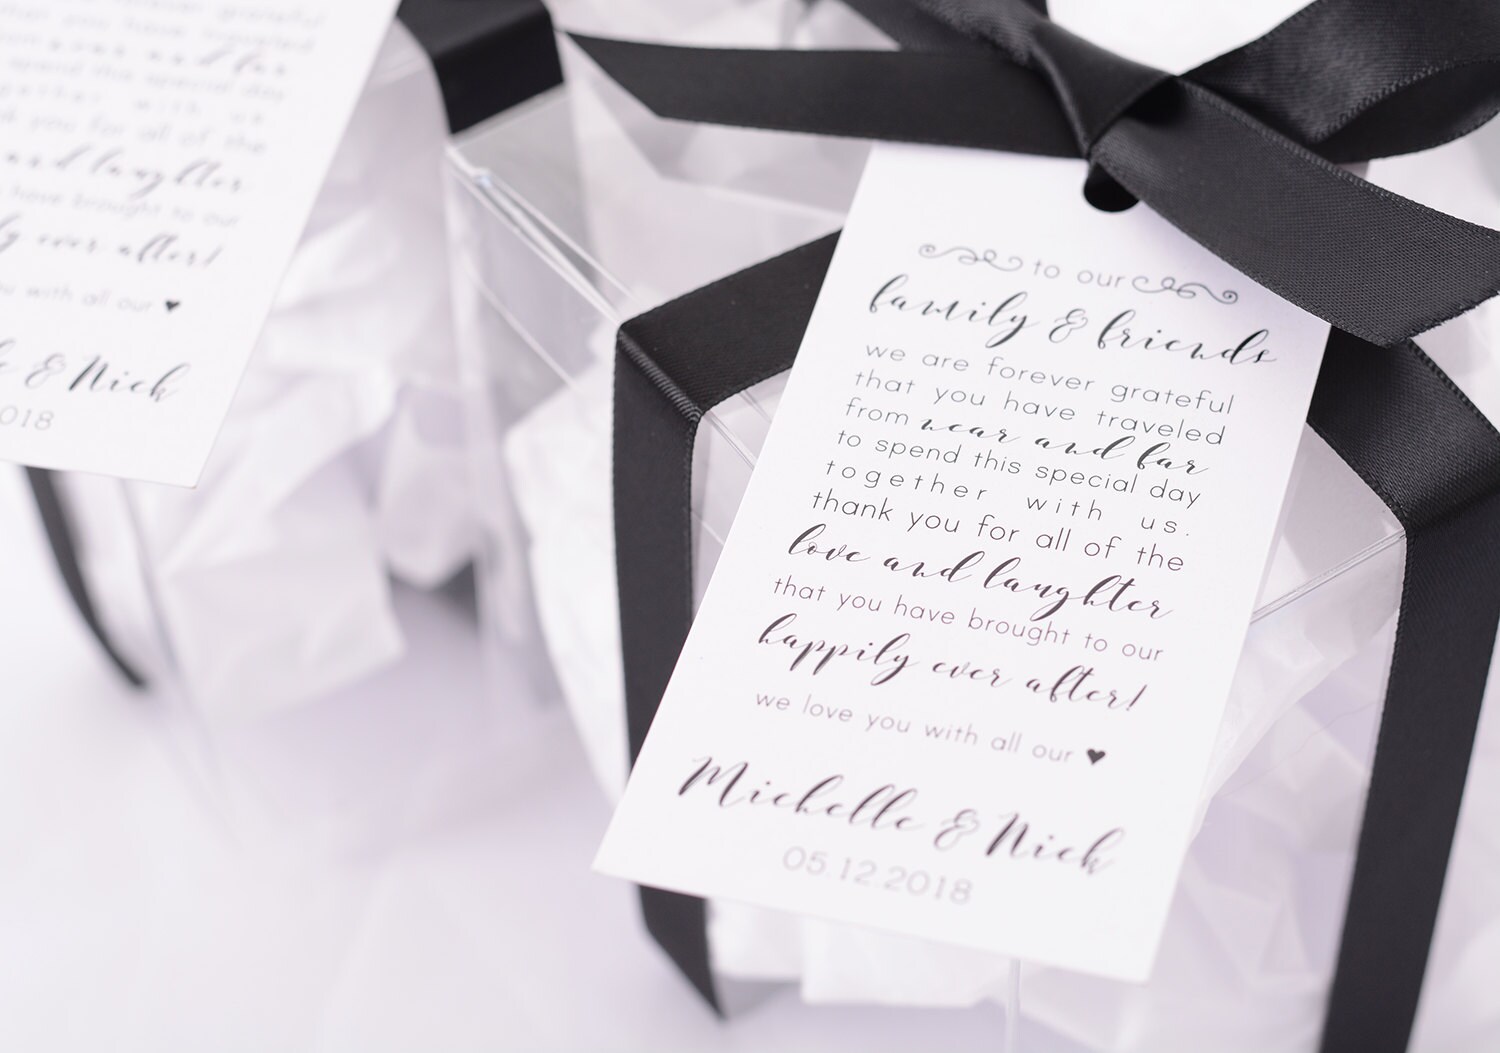 forever grateful
you have traveled
near and far
spend this special day
together with us.
you for all of the
and laughter
have brought to our
ever after!
with all our ♥
& Nick
2018
to our
family & friends
we are forever grateful
that you have traveled
from near and far
to spend this special day
together with us.
thank you for all of the
love and laughter
that you have brought to our
happily ever after!
we love you with all our ♥
Michelle & Nick
05.12.2018